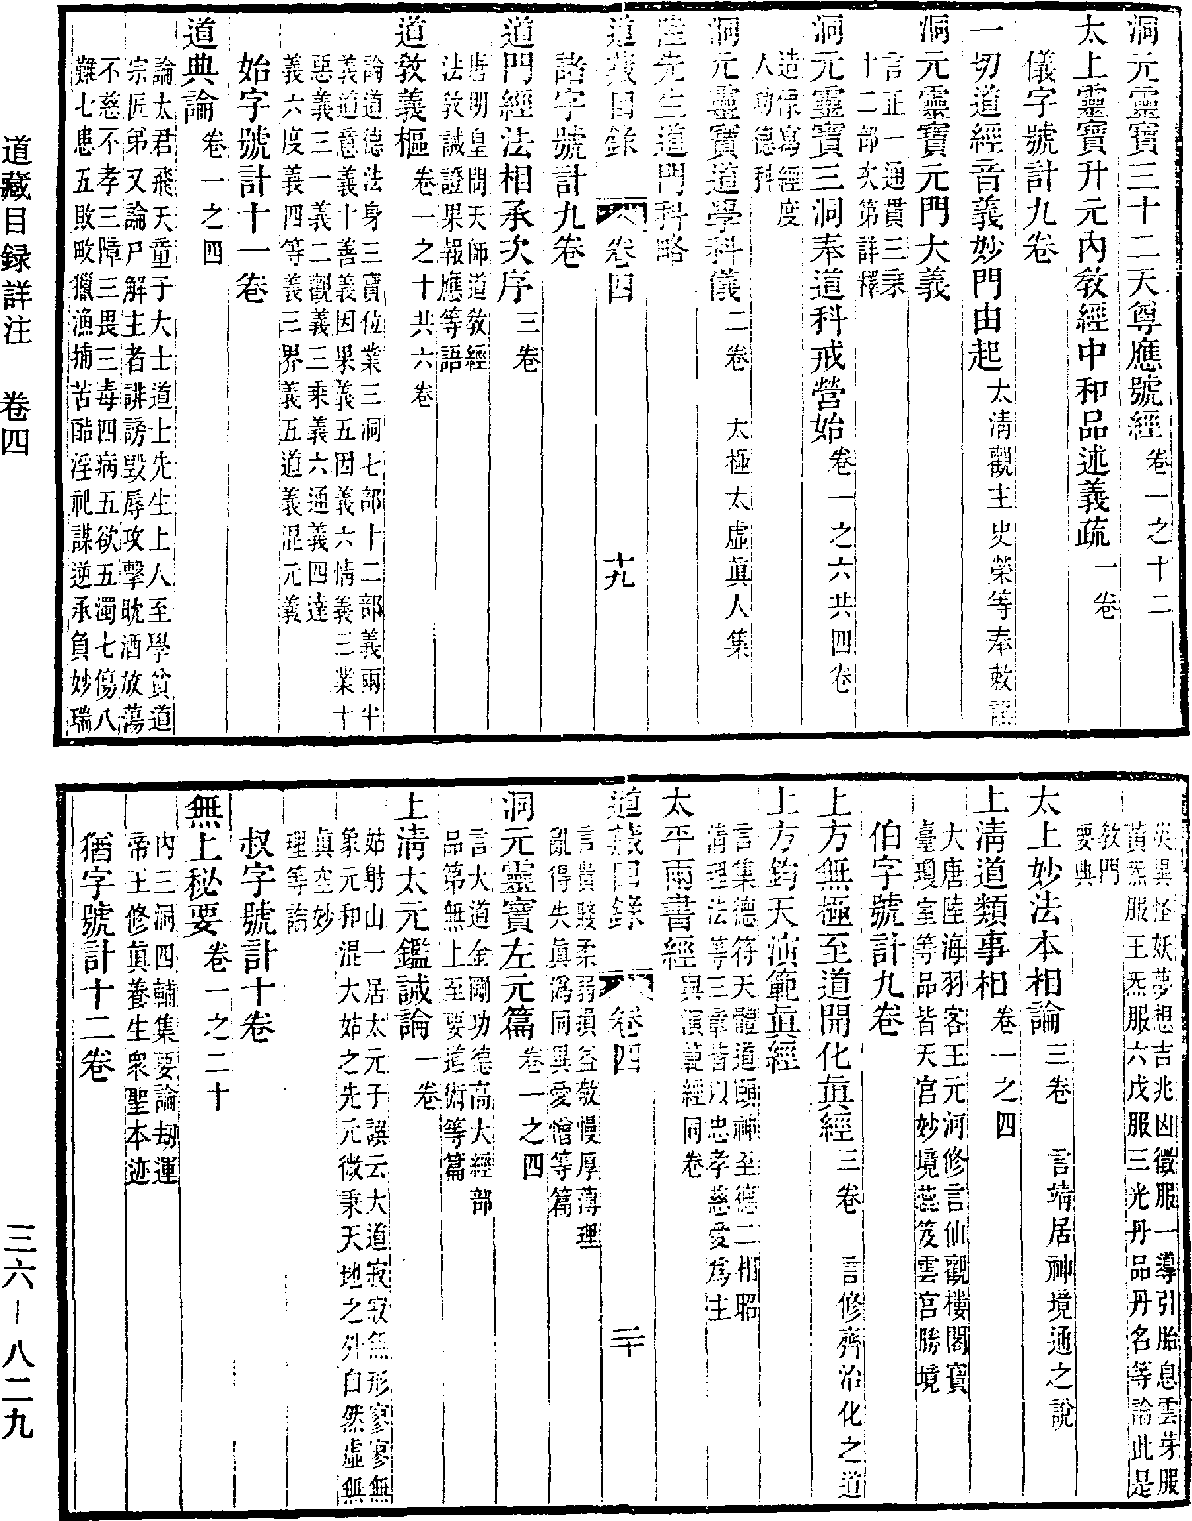 洞元靈寶三十二天尊應號經卷一之十二
太上靈寶升元內敎經中和品述義疏一卷
儀字號計九卷
一切道經音義妙門由起太淸觀主史榮等奉敕
洞元靈寶元門大義
言正一通貫三乘
十二部次第詳釋
洞元靈寶三洞奉道科戒營始卷一之六共四卷
造像寫經度
人功德科
洞元靈寶道學科儀二卷 太極太虛眞人集
陸先生道門科略
道藏目錄 卷四 十九
諸字號計九卷
道門經法相承次序三卷
唐明皇問天師道敎經
法敎誡證果報應等語
道敎義樞卷一之十共六卷
論道德法身三寶位業三洞七部十二部義兩半
義道意義十善義因果義五因義六情義三業十
惡義三一義二觀義三乘義六通義四達
義六度義四等義三界義五道義混元義
始字號計十一卷
道典論卷一之四
論太君飛天童子大士道士先生上人至學貧道
宗匠弟又論尸解主者誹謗毀辱攻擊耽酒放蕩
不慈不孝三障三畏三毒四病五欲五濁七傷八
難七患五敗畋獵漁捕苦酷淫祀謀逆承負妙瑞
災異怪妖夢想吉兆凶徵服一導引胎息雲芽服
黃炁服王炁服六戊服三光丹品丹名等論此是
敎門
要典
太上妙法本相論三卷 言靖居神境通之說
上淸道類事相卷一之四
大唐陸海羽客王元河修言仙觀樓閣寶
臺瓊室等品皆天宮妙境蕊笈雲宮勝境
伯字號計九卷
上方無極至道開化眞經三卷 言修齊治化之道
上方鈞天演範眞經
言集德符天體道頤神至德二相昭
淸理法等三章皆以忠孝慈愛爲主
太平兩書經與演範經同卷
道藏目錄 卷四 二十
言貴賤柔弱損益敬慢厚薄理
亂得失眞僞同異愛憎等篇
洞元靈寶左元篇卷一之四
言大道金剛功德高大經部
品第無上至要道術等篇
上淸太元鑑誡論一卷
姑射山一居太元子譔云大道寂寂無形寥寥無
象元和混大姑之先元微秉天地之外自然虛無
眞空妙
理等論
叔字號計十卷
無上秘要卷一之二十
內三洞四輔集要論劫運
帝王修眞養生衆聖本迹
猶字號計十二卷
道藏目錄詳注 卷四
三六-八二九